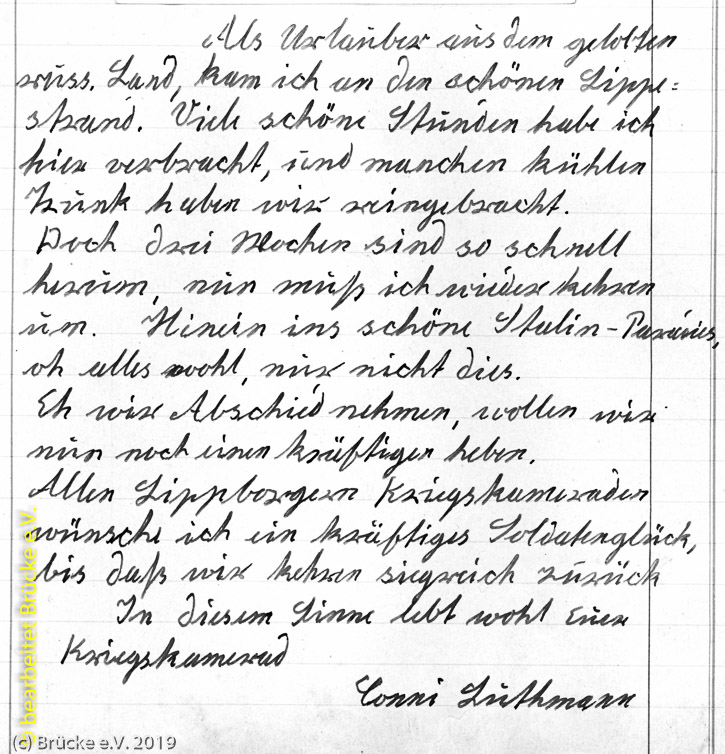 Als Urlauber aus dem gelobten
russ. Land, kam ich an den schönen Lippe=
strand. Viele schöne Stunden habe ich
hier verbracht, und manchen kühlen
Trunk haben wir reingebracht.
Doch drei Wochen sind so schnell
herum, nun muß ich wieder kehren
um. Hinein ins schöne Stalin-Paradies,
oh alles wohl, nur nicht dies.
Eh wir Abschied nehmen, wollen wir
nun noch einen kräftigen heben.
Allen Lippborgern Kriegskameraden
wünsche ich ein kräftiges Soldatenglück,
bis daß wir kehren siegreich zurück
In diesem Sinne lebt wohl Euer
Kriegskamerad
Conni Luthmann
© bearbeitet Brücke e.V.
(c) Brücke e.V. 2019